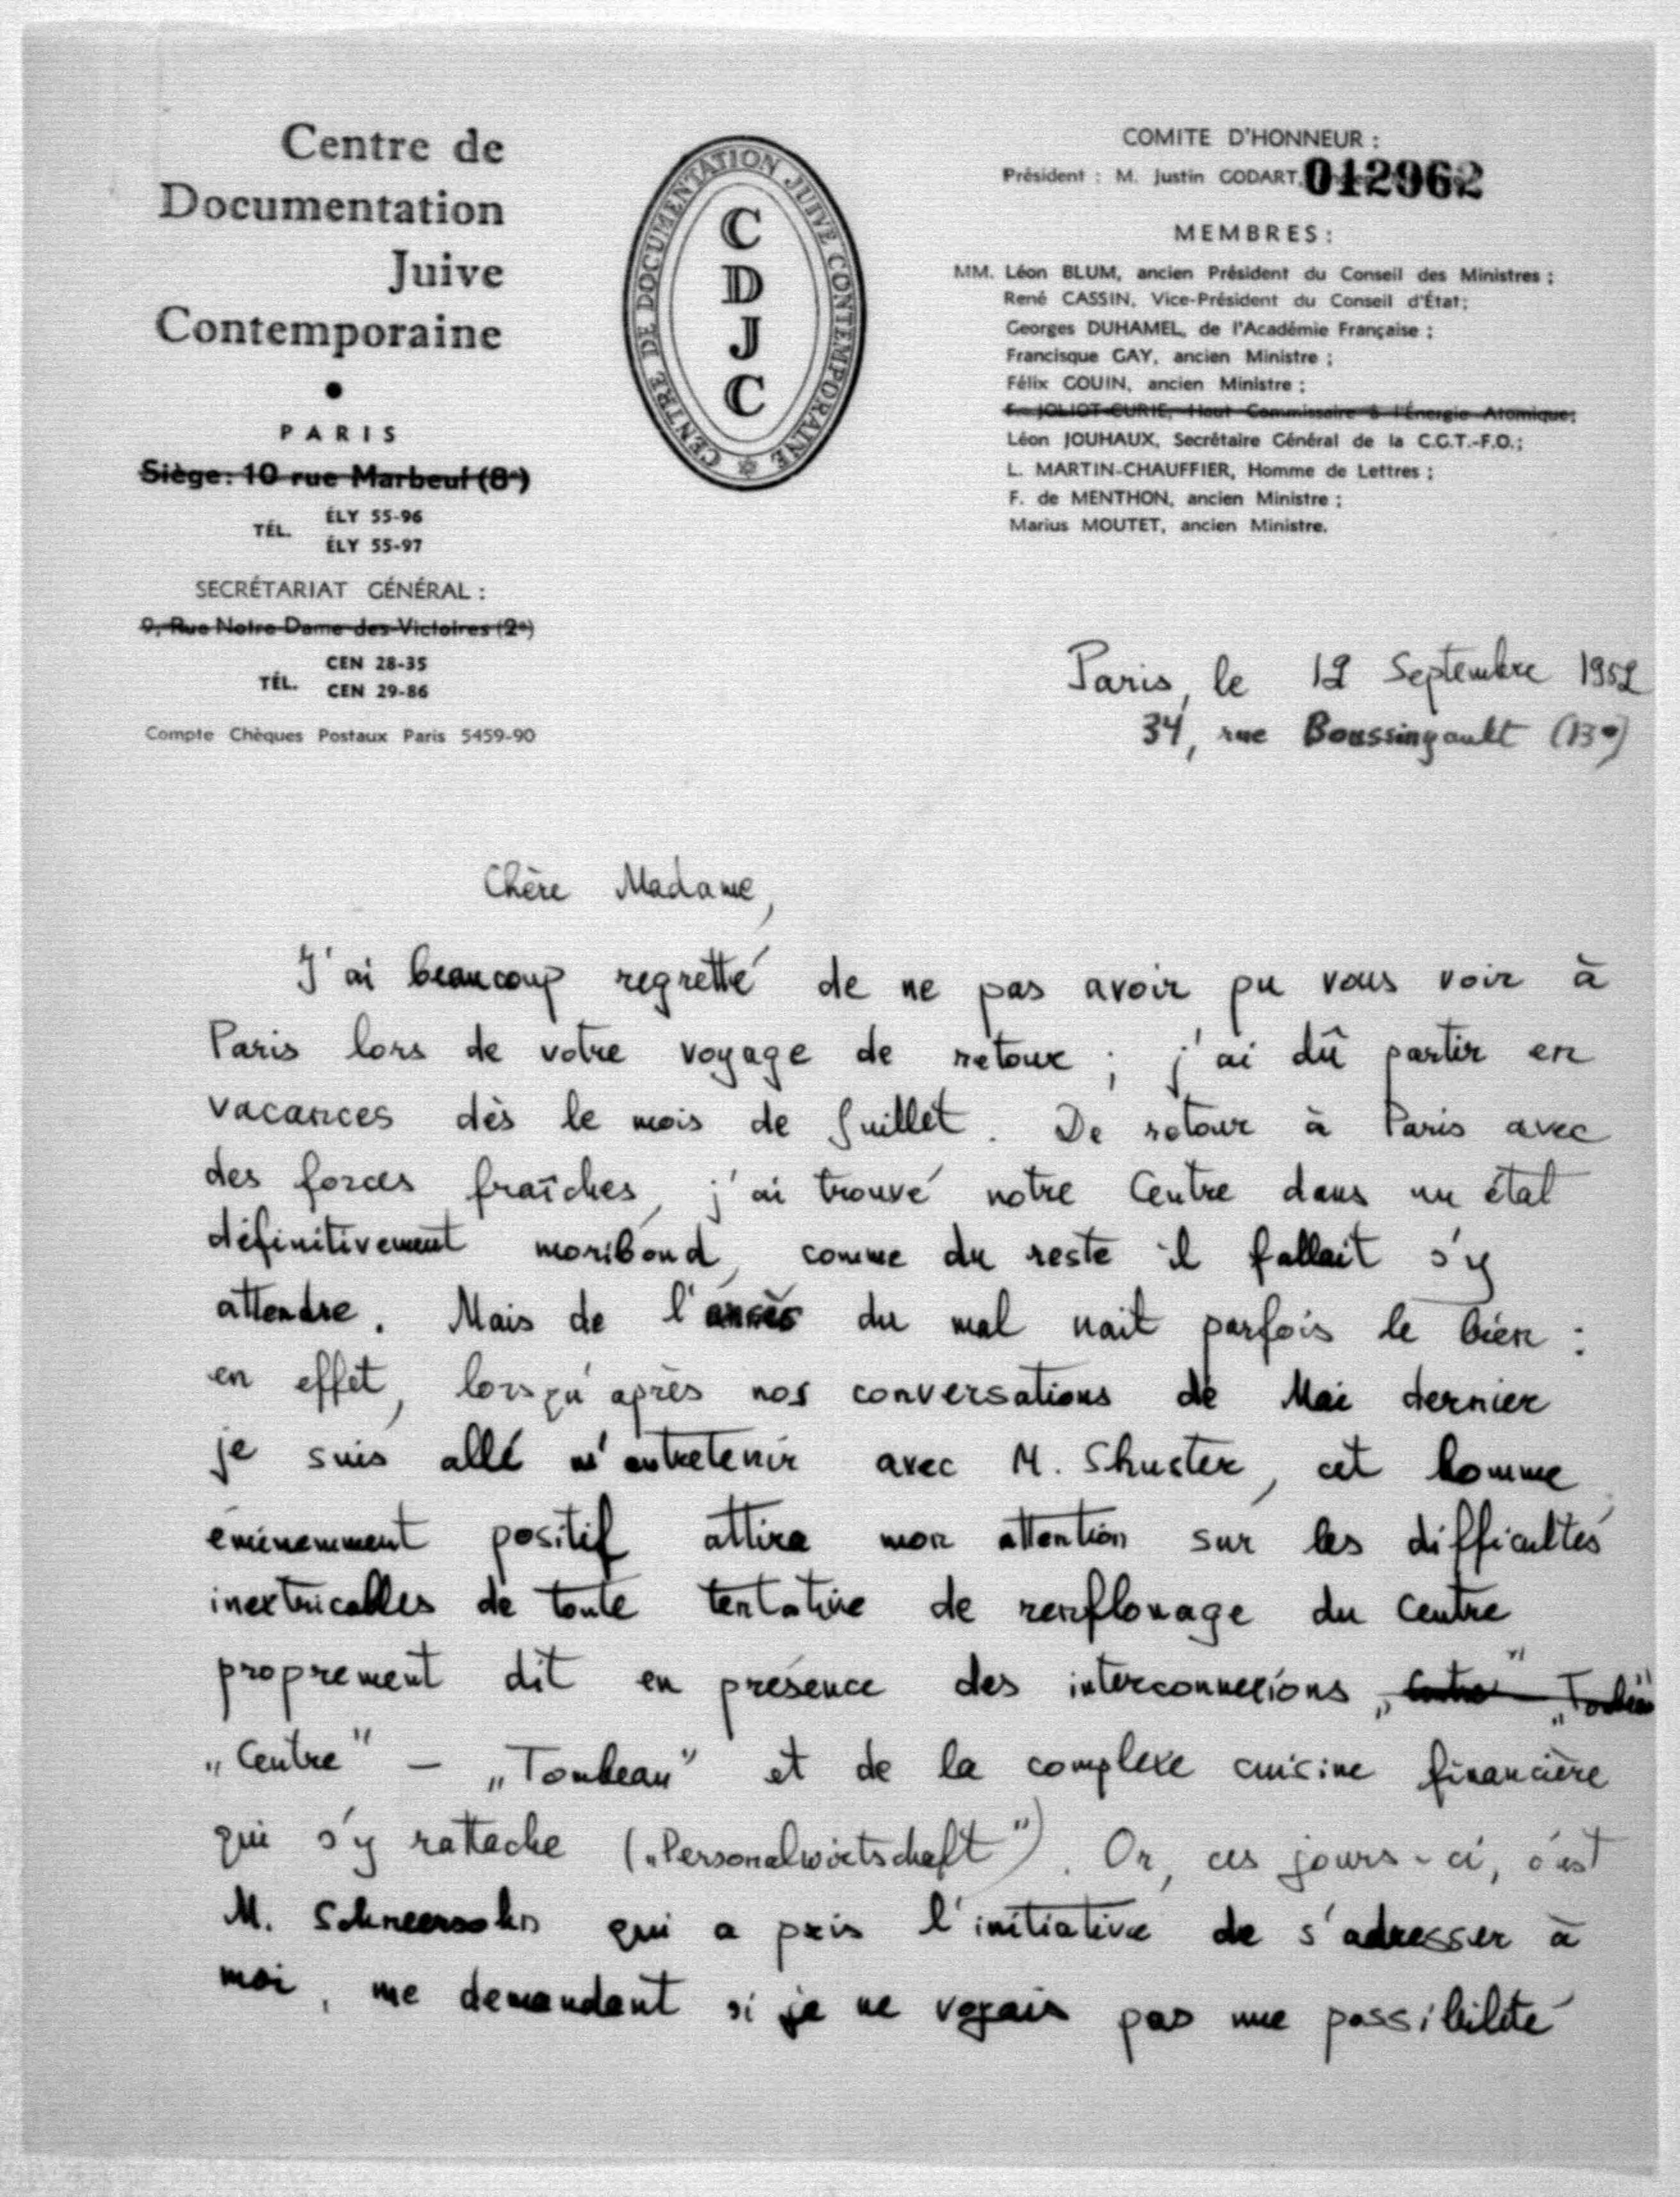 Centre de
Documentation
Juive
Contemporaine
•
PARIS
Siège: 10 rue Marbeuf (8e)
TÉL. ÉLY 55-96
ÉLY 55-97
SECRÉTARIAT GÉNÉRAL :
9, Rue Notre-Dame-des-Victoires (2e)
TÉL. CEN 28-35
CEN 29-86
Compte Chèques Postaux Paris 5459-90
CENTRE DE DOCUMENTATION JUIVE CONTEMPORAINE
C
D
J
C
COMITE D'HONNEUR :
Président : M. Justin GODART,
012962
MEMBRES :
MM. Léon BLUM, ancien Président du Conseil des Ministres ;
René CASSIN, Vice-Président du Conseil d'État;
Georges DUHAMEL, de l'Académie Française ;
Francisque GAY, ancien Ministre ;
Félix GOUIN, ancien Ministre ;
F. JOLIOT-CURIE, Haut Commissaire à l'Énergie Atomique;
Léon JOUHAUX, Secrétaire Général de la C.G.T.-F.O.;
L. MARTIN-CHAUFFIER, Homme de Lettres ;
F. de MENTHON, ancien Ministre ;
Marius MOUTET, ancien Ministre.
Paris, le 12 Septembre 1952
34, rue Boussingault (13e)
Chère Madame,
J'ai beaucoup regretté de ne pas avoir pu vous voir à
Paris lors de votre voyage de retour ; j'ai dû partir en
vacances dès le mois de Juillet. De retour à Paris avec
des forces fraîches, j'ai trouvé notre Centre dans un état
définitivement moribond, comme du reste il fallait s'y
attendre. Mais de du mal nait parfois le bien :
en effet, lorsqu'après nos conversations de Mai dernier
je suis allé m'entretenir avec M. Shuster, cet homme
éminemment positif attira mon attention sur les difficultés
inextricables de toute tentative de renflouage du Centre
proprement dit en présence des interconnexions „Centre" – „
„Centre" – „Tombeau" et de la complexe cuisine financière
qui s'y rattache („Personalwirtschaft"). Or, ces jours-ci, c'est
M. Schneersohn qui a pris l'initiative de s'adresser à
moi, me demandant si je ne voyais pas une possibilité